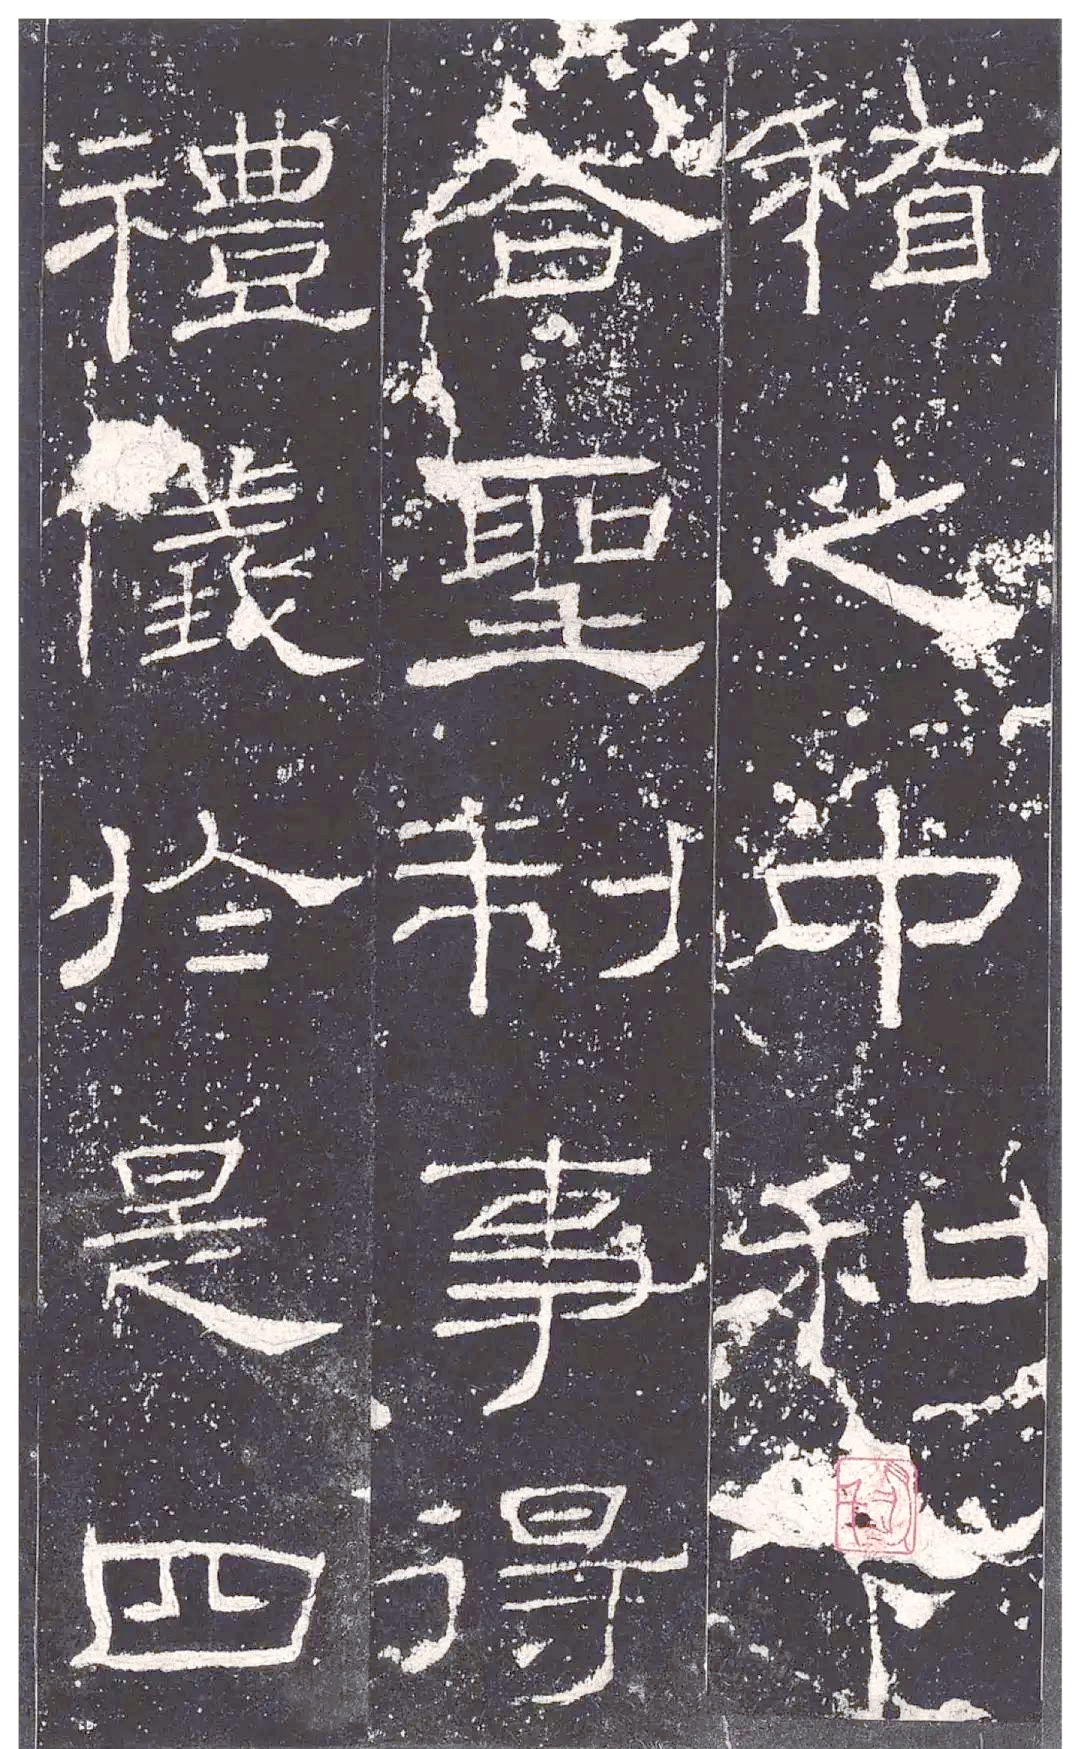 稽之中和下
合聖制事得
禮儀於是四